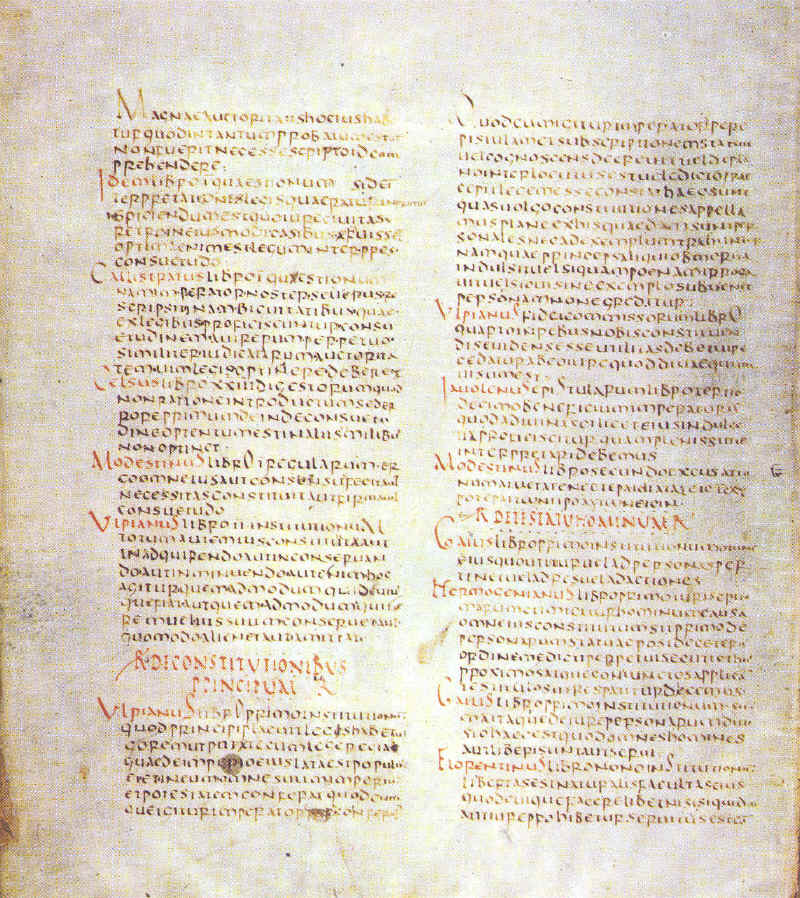 MAGNAE AUCTORITATIS HOC IUS HABE
TUR QUOD IN TANTUM PROBATUM EST UT
NON FUERIT NECESSE SCRIPTO ID COM
PREHENDERE
IDEM LIBRO I QUAESTIONUM SI DE IN
TERPRETATIONE LEGIS QUAERATUR INPRIMIS
INSPICIENDUM EST QUO IURE CIVITAS
RETRO IN EIUSMODI CASIBUS FUISSE
OPTIMA ENIM EST LEGUM INTERPRES
CONSUETUDO
CALLISTRATUS LIBRO I QUAESTIONUM
NAM IMPERATOR NOSTER SEUERUS RE
SCRIPSIT IN AMBIGUITATIBUS QUAE
EX LEGIBUS PROFICISCUNTUR CONSU
ETUDINEM AUT RERUM PERPETUO
SIMILITER IUDICATARUM AUCTORITA
TEM UIM LEGIS OPTINERE DEBERE
CELSUS LIBRO XXIII DIGESTORUM QUOD
NON RATIONE INTRODUCTUM SED ER
RORE PRIMUM DEINDE CONSUETU
DINE OPTENTUM EST IN ALIIS SIMILIBUS
NON OPTINET
MODESTINUS LIBRO I REGULARUM ER
GO OMNE IUS AUT CONSENSUS FECIT AUT
NECESSITAS CONSTITUIT AUT FIRMAUIT
CONSUETUDO
ULPIANUS LIBRO II INSTITUTIONUM
TOTUM AUTEM IUS CONSISTIT AUT
IN ADQUIRENDO AUT IN CONSERUAN
DO AUT IN MINUENDO AUT ENIM HOC
AGITUR QUEMADMODUM QUID CUIUS
QUE FIAT AUT QUEMADMODUM QUIS
REM UEL IUS SUUM CONSERUET AUT
QUOMODO ALIENET AUT AMITTAT
R DE CONSTITUTIONIBUS
PRINCIPUM R
ULPIANUS LIBRO PRIMO INSTITUTIONUM
QUOD PRINCIPI PLACUIT LEGIS HABET UI
GOREM UTPOTE CUM LEGE REGIA
QUAE DE IMPERIO EIUS LATA EST POPULUS
EI ET IN EUM OMNE SUUM IMPERIUM
ET POTESTATEM CONFERAT QUODCUM
QUE IGITUR IMPERATOR
QUODCUMQ IGITUR IMPERATOR PER E
PISTULAM ET SUBSCRIPTIONEM STATUIT
UEL COGNOSCENS DECREUIT UEL DE PLA
NO INTERLOCUTUS EST UEL EDICTO PRAE
CEPIT LEGEM ESSE CONSTAT HAE SUNT
QUAS UOLGO CONSTITUTIONES APPELLA
MUS PLANE EX HIS QUAEDAM SUNT PER
SONALES NEC AD EXEMPLUM TRAHUNTUR
NAM QUAE PRINCEPS ALICUI OB MERITA
INDULSIT UEL SI QUAM POENAM IRROGA
UIT UEL SI CUI SINE EXEMPLO SUBUENIT
PERSONAM NON EGREDITUR
ULPIANUS FIDEICOMMISSORUM LIBRO
QUARTO IN REBUS NOUIS CONSTITUEN
DIS EUIDENS ESSE UTILITAS DEBET UT RE
CEDATUR AB EO IURE QUOD DIU AEQUUM
UISUM EST
IAUOLENUS EPISTULARUM LIBRO TERTIO
DECIMO BENEFICIUM IMPERATORIS
QUOD A DIUINA SCILICET EIUS INDULGEN
TIA PROFICISCITUR QUAM PLENISSIME
INTERPRETARI DEBEMUS
MODESTINUS LIBRO SECUNDO EXCUSATIO
NUM
R DE STATU HOMINUM R
GAIUS LIBRO PRIMO INSTITUTIONUM OMNE
IUS QUO UTIMUR UEL AD PERSONAS PER
TINET UEL AD RES UEL AD ACTIONES
HERMOGENIANUS LIBRO PRIMO IURIS EPITO
MARUM CUM IGITUR HOMINUM CAUSA
OMNE IUS CONSTITUTUM SIT PRIMO DE
PERSONARUM STATU AC POST DE CETERIS
ORDINEM EDICTI PERPETUI SECUTI ET HIS
PROXIMOS ATQUE CONIUNCTOS APPLICAN
TES TITULOS UT RES PATITUR DICEMUS
GAIUS LIBRO PRIMO INSTITUTIONUM SUM
MA ITAQUE DE IURE PERSONARUM DIUI
SIO HAEC EST QUOD OMNES HOMINES
AUT LIBERI SUNT AUT SERUI
FLORENTINUS LIBRO NONO INSTITUTIONUM
LIBERTAS EST NATURALIS FACULTAS EIUS
QUOD CUIQUE FACERE LIBET NISI SI QUID UI
AUT IURE PROHIBETUR SERUITUS EST